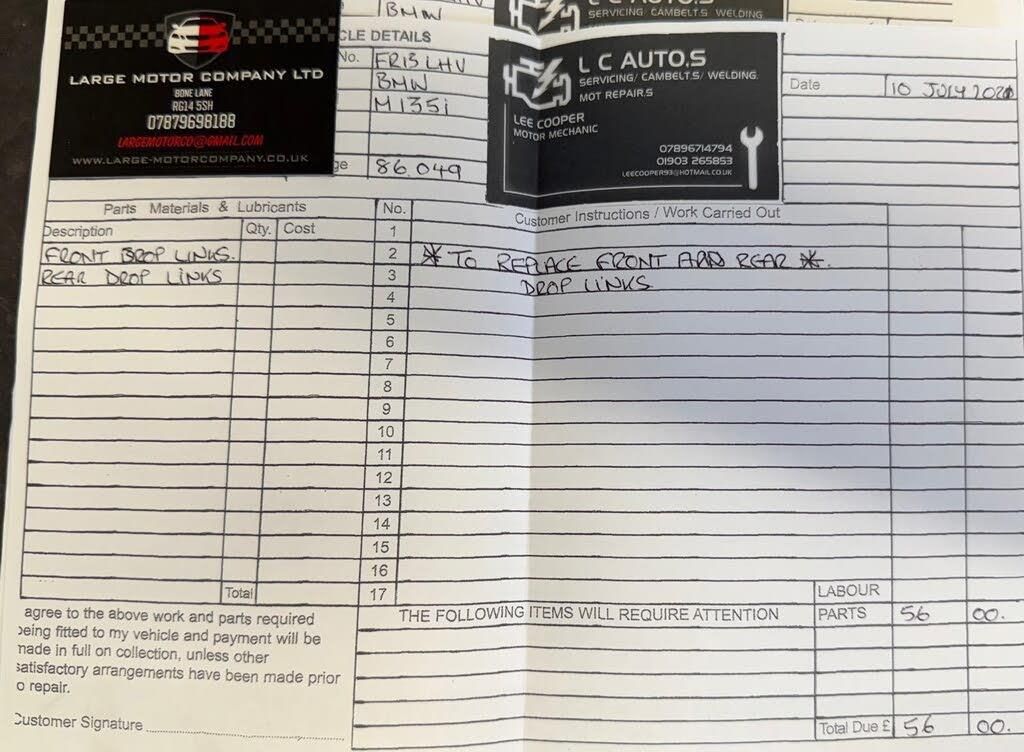 BMW
SERVICING/ CAMBELT.S WELDING
CLE DETAILS
No. FR13 LHV
BMW
M135i
ge 86.049
LARGE MOTOR COMPANY LTD
BONE LANE
RG14 5SH
07879698188
LARGEMOTORCO@GMAIL.COM
WWW.LARGE-MOTORCOMPANY.CO.UK
L C AUTO,S
SERVICING/ CAMBELT.S/ WELDING.
MOT REPAIR.S
LEE COOPER
MOTOR MECHANIC
07896714794
01903 265853
LEECOOPER93@HOTMAIL.CO.UK
Date 10 JULY
Parts Materials & Lubricants No. Customer Instructions / Work Carried Out
Description Qty. Cost 1
FRONT DROP LINKS. 2 * TO REPLACE FRONT AND REAR *.
REAR DROP LINKS 3 DROP LINKS
4
5
6
7
8
9
10
11
12
13
14
15
16
Total 17 LABOUR
THE FOLLOWING ITEMS WILL REQUIRE ATTENTION PARTS 56 00.
agree to the above work and parts required
being fitted to my vehicle and payment will be
made in full on collection, unless other
satisfactory arrangements have been made prior
o repair.
Customer Signature
Total Due £ 56 00.